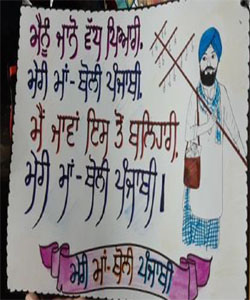 ਮੈਨੂੰ ਜਾਨੋ ਵੱਧ ਪਿਆਰੀ,
ਮੇਰੀ ਮਾਂ-ਬੋਲੀ ਪੰਜਾਬੀ,
ਮੈਂ ਜਾਵਾਂ ਇਸ ਤੋਂ ਬਲਿਹਾਰੀ,
ਮੇਰੀ ਮਾਂ-ਬੋਲੀ ਪੰਜਾਬੀ।
ਮੇਰੀ ਮਾਂ-ਬੋਲੀ ਪੰਜਾਬੀ